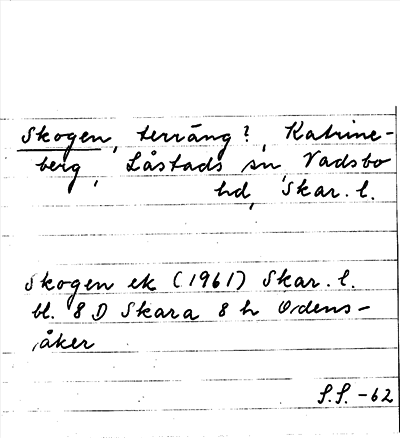 Skogen, terräng?, Katrine-
berg, Låstads sn, Vadsbo
hd, Skar. l.
Skogen ek (1961) Skar. l.
bl. 8 D Skara 8 h Odens-
åker
S.S. -62